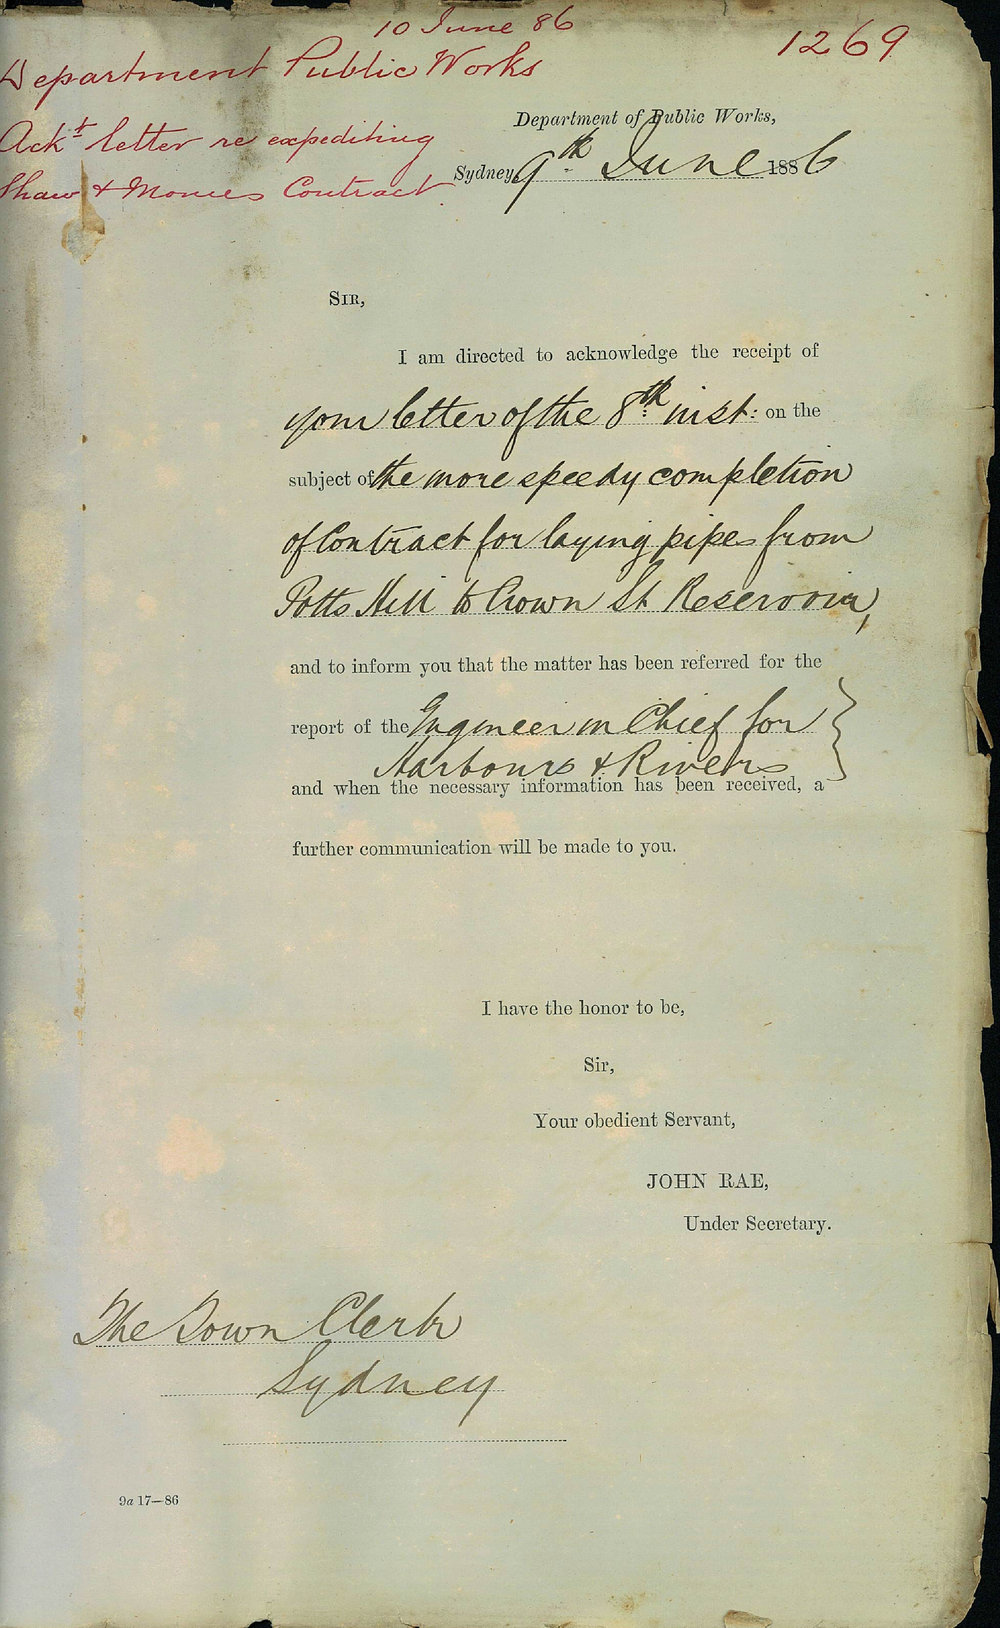 10 June 86
1269
Department Public Works
Ackt letter re expediting
Shaw & Contract
Department of Public Works,
Sydney 9th June 1886
SIR,
I am directed to acknowledge the receipt of
your letter of the 8th inst: on the
subject of the more speedy completion
of Contract for laying pipes from
Potts Hill to Crown St Reservoir,
and to inform you that the matter has been referred for the
report of the Engineer in Chief for
Harbours & Rivers
and when the necessary information has been received, a
further communication will be made to you.
I have the honor to be,
Sir,
Your obedient Servant,
JOHN RAE,
Under Secretary.
The Town Clerk
Sydney
9a 17—86